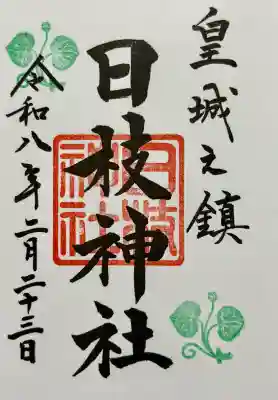 皇城之鎮
日枝神社
日枝神社
令和八年二月二十三日